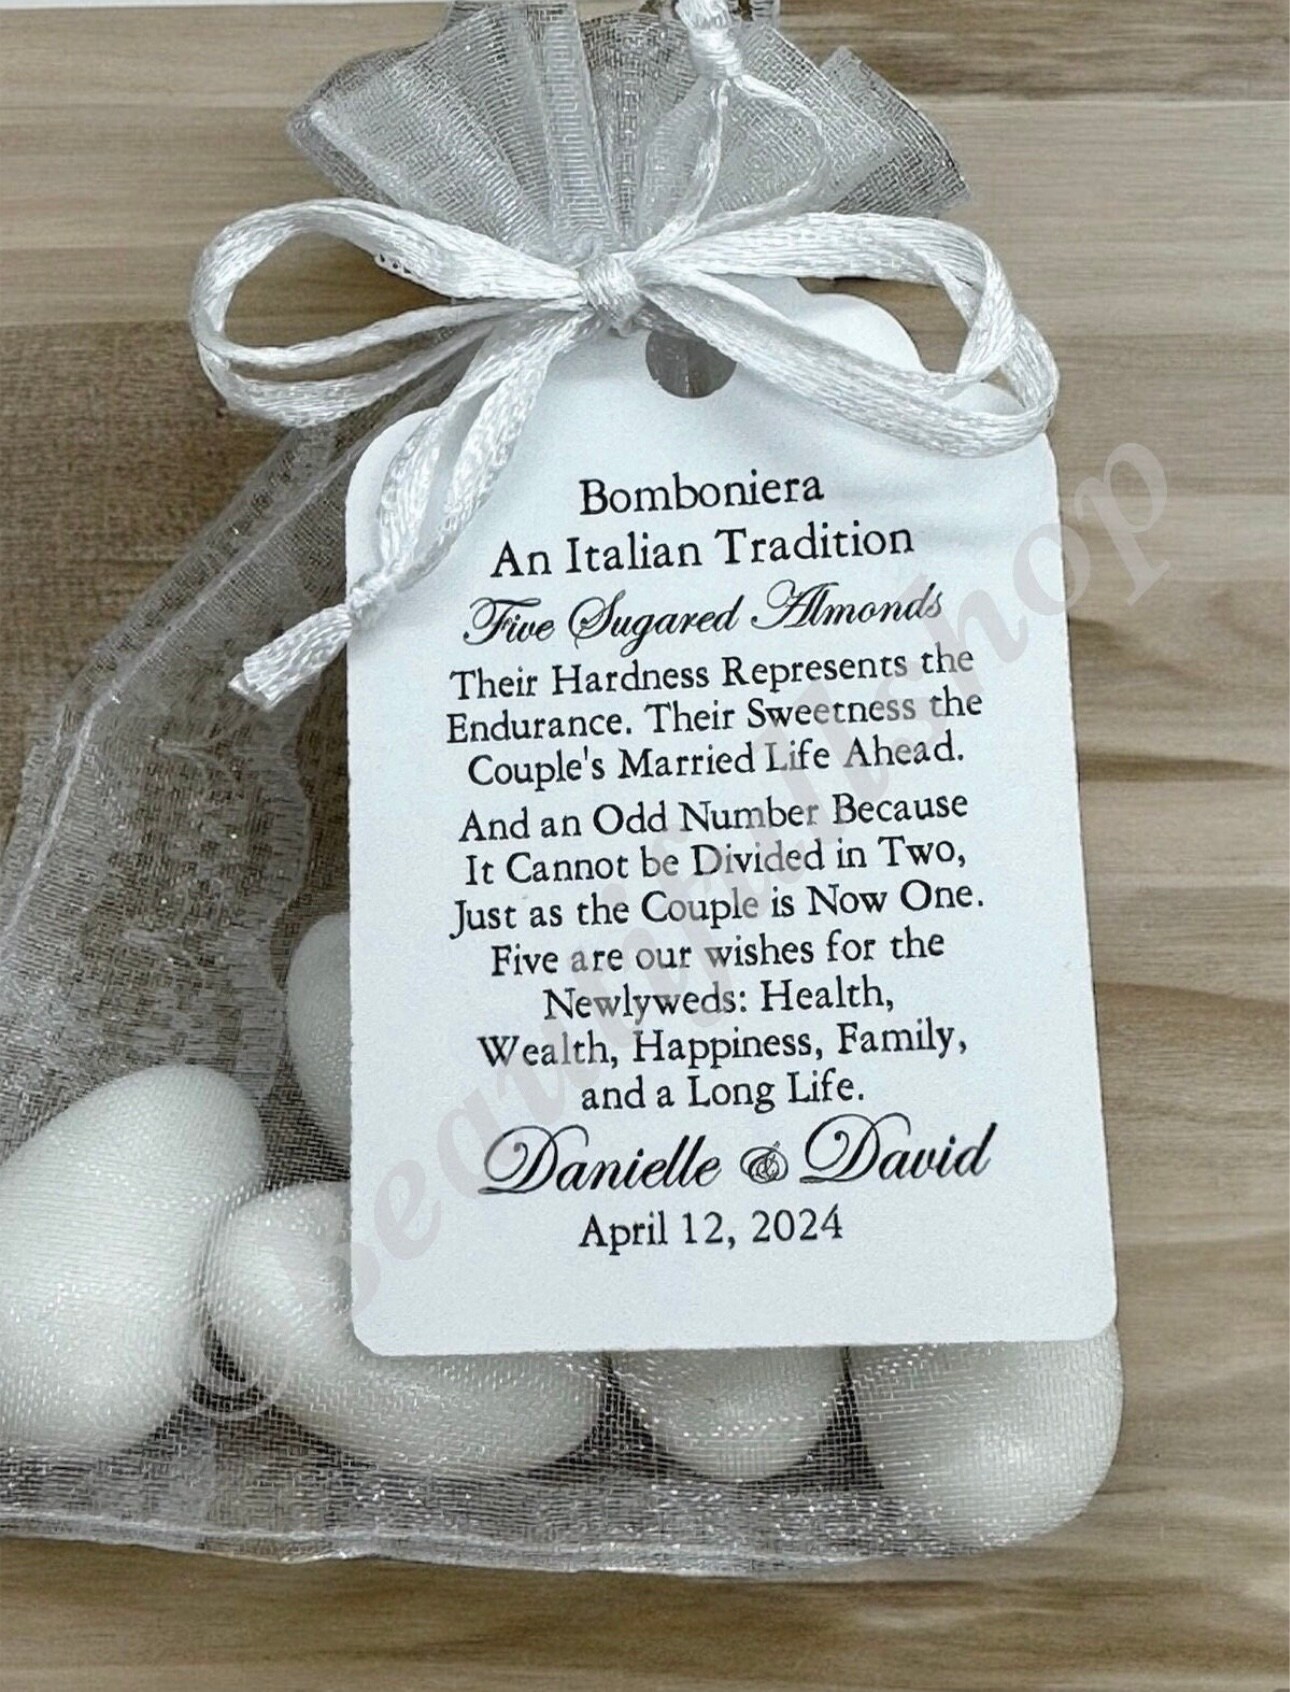 Bomboniera
An Italian Tradition
Five Sugared Almonds
Their Hardness Represents the
Endurance. Their Sweetness the
Couple's Married Life Ahead.
And an Odd Number Because
It Cannot be Divided in Two,
Just as the Couple is Now One.
Five are our wishes for the
Newlyweds: Health,
Wealth, Happiness, Family,
and a Long Life.
Danielle & David
April 12, 2024
©Beautifullshop